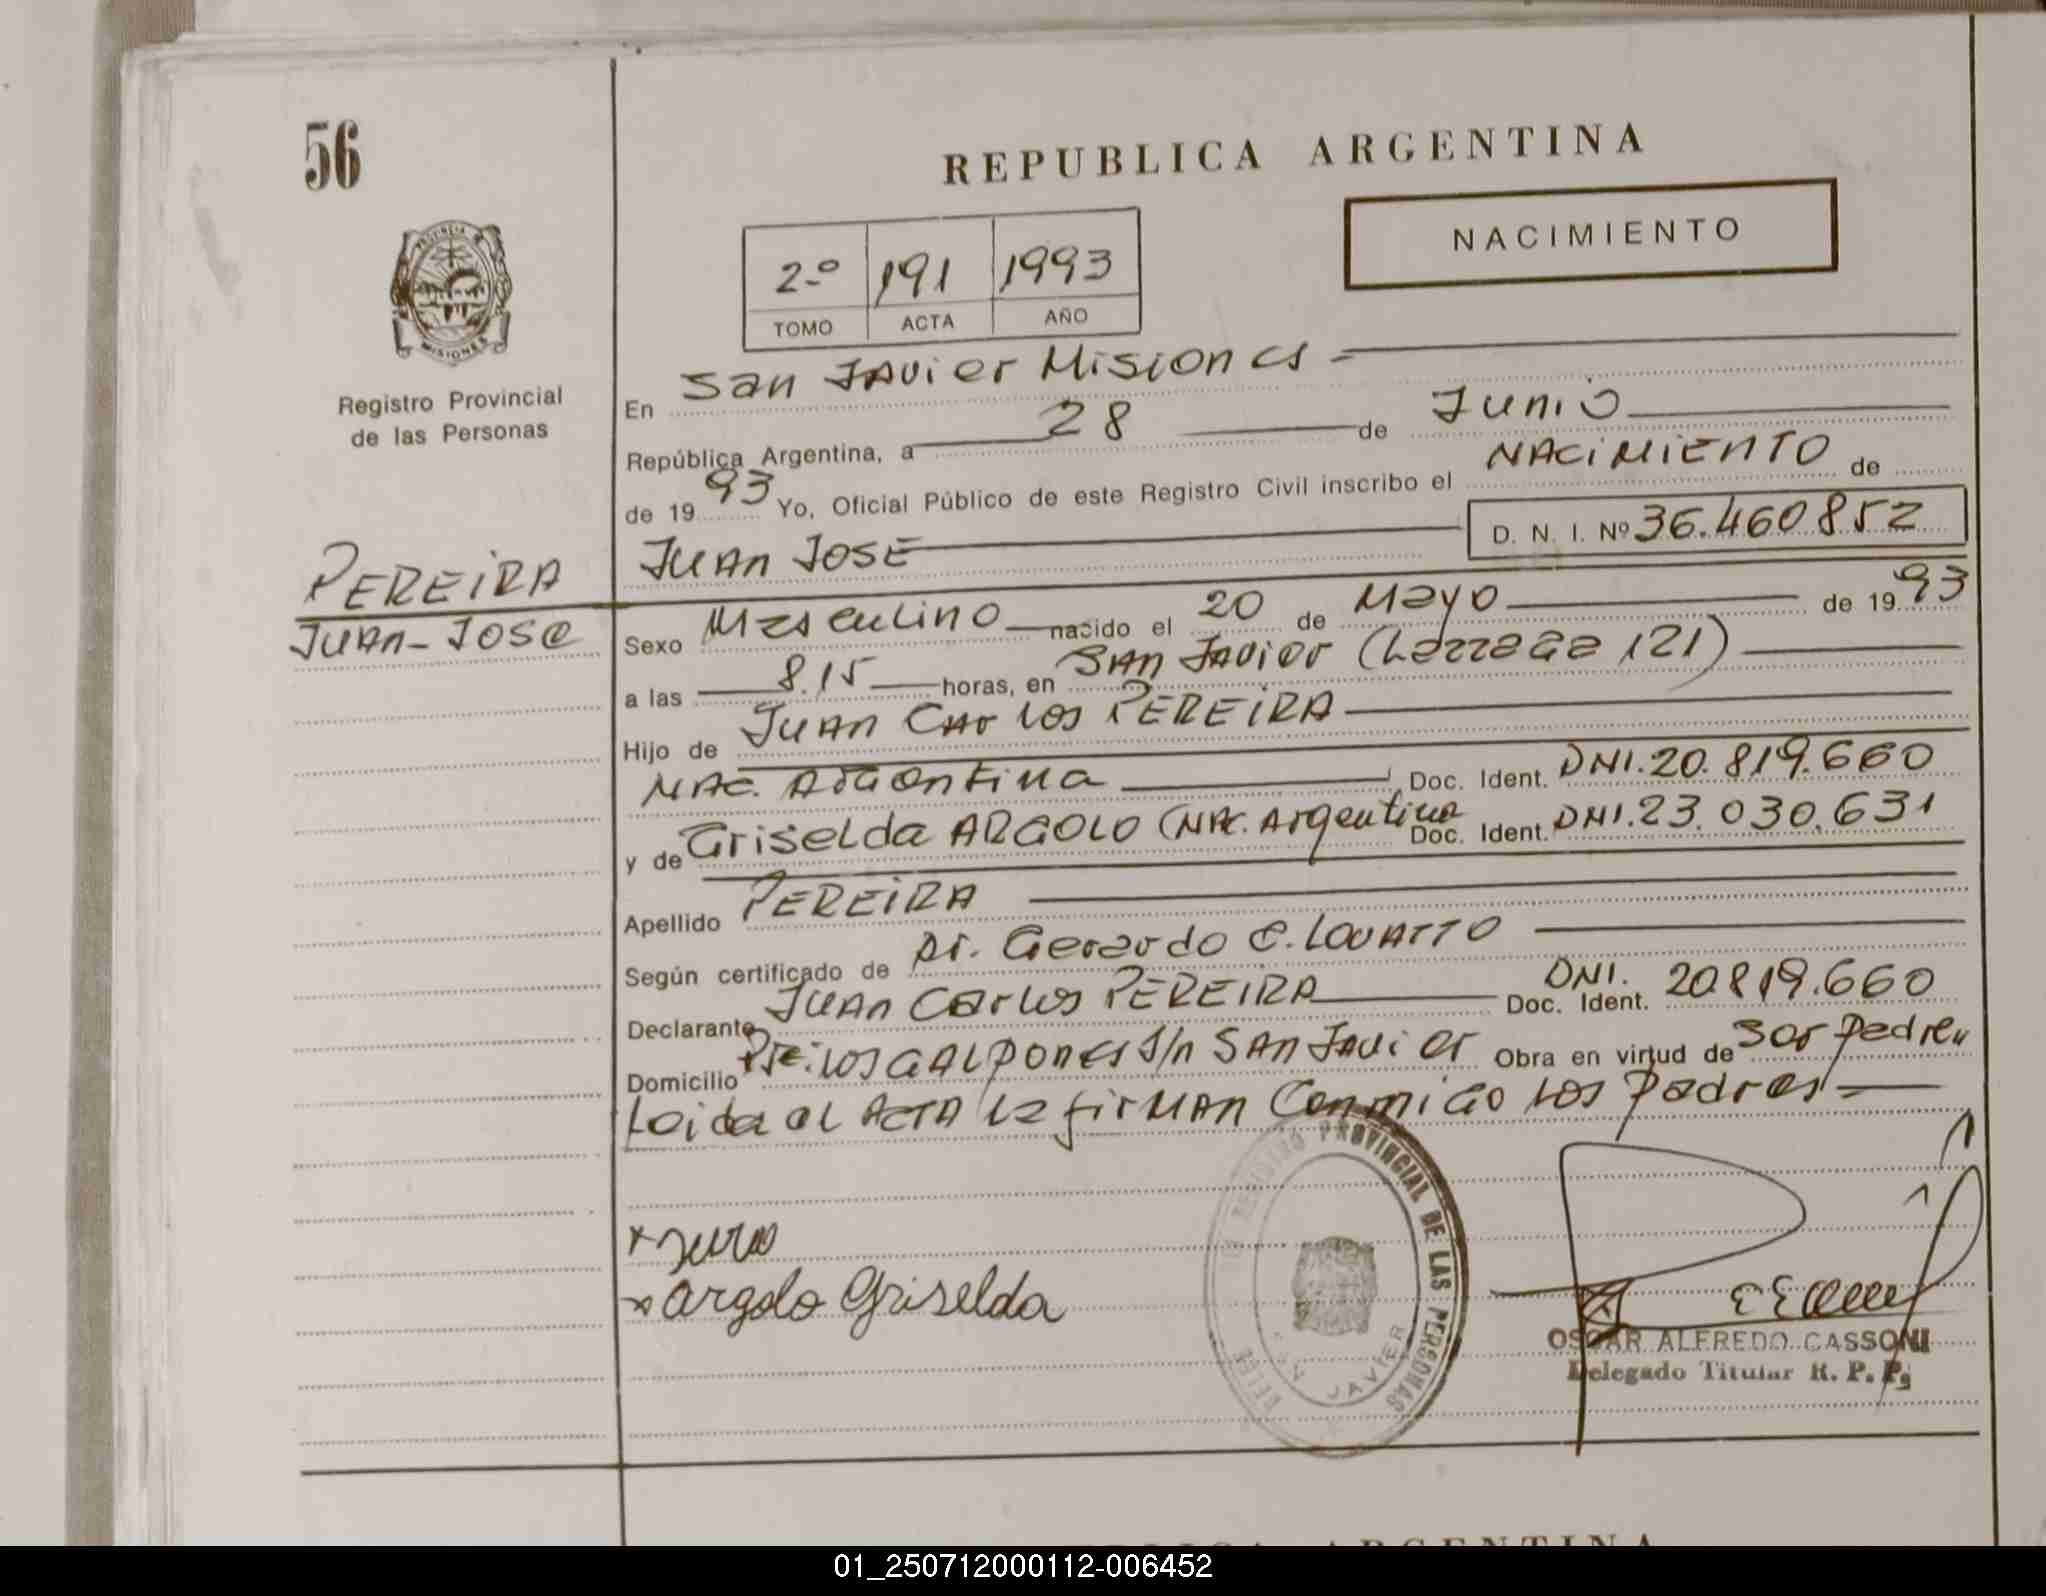 56
REPUBLICA ARGENTINA
NACIMIENTO
2º 191 1993
TOMO ACTA AÑO
PROVINCIA DE MISIONES
Registro Provincial
de las Personas
En San Javier Misiones
República Argentina, a 28 de Junio
de 1993 Yo, Oficial Público de este Registro Civil inscribo el NACIMIENTO de
JUAN JOSE D. N. I. Nº 36.460.852
PEREIRA
JUAN-JOSE
Sexo Masculino nacido el 20 de Mayo de 1993
a las 8.15 horas, en SAN Javier (Larrea 121)
Hijo de JUAN CARLOS PEREIRA
NAC. Argentina Doc. Ident. DNI. 20.819.660
y de Griselda ARGOLO (NAC. Argentina Doc. Ident. DNI. 23.030.631
Apellido PEREIRA
Según certificado de Dr. Gerardo C. LOVATTO
Declarante JUAN Carlos PEREIRA Doc. Ident. DNI. 20819.660
Domicilio Pje. LOS GALPONES S/n SAN Javier Obra en virtud de ser padre
Leida el ACTA la firman Conmigo Los Padres
REGISTRO PROVINCIAL DE LAS PERSONAS
JAVIER
Argolo Griselda
OSCAR ALFREDO CASSONI
Delegado Titular R. P. P.
REPUBLICA ARGENTINA
01_250712000112-006452